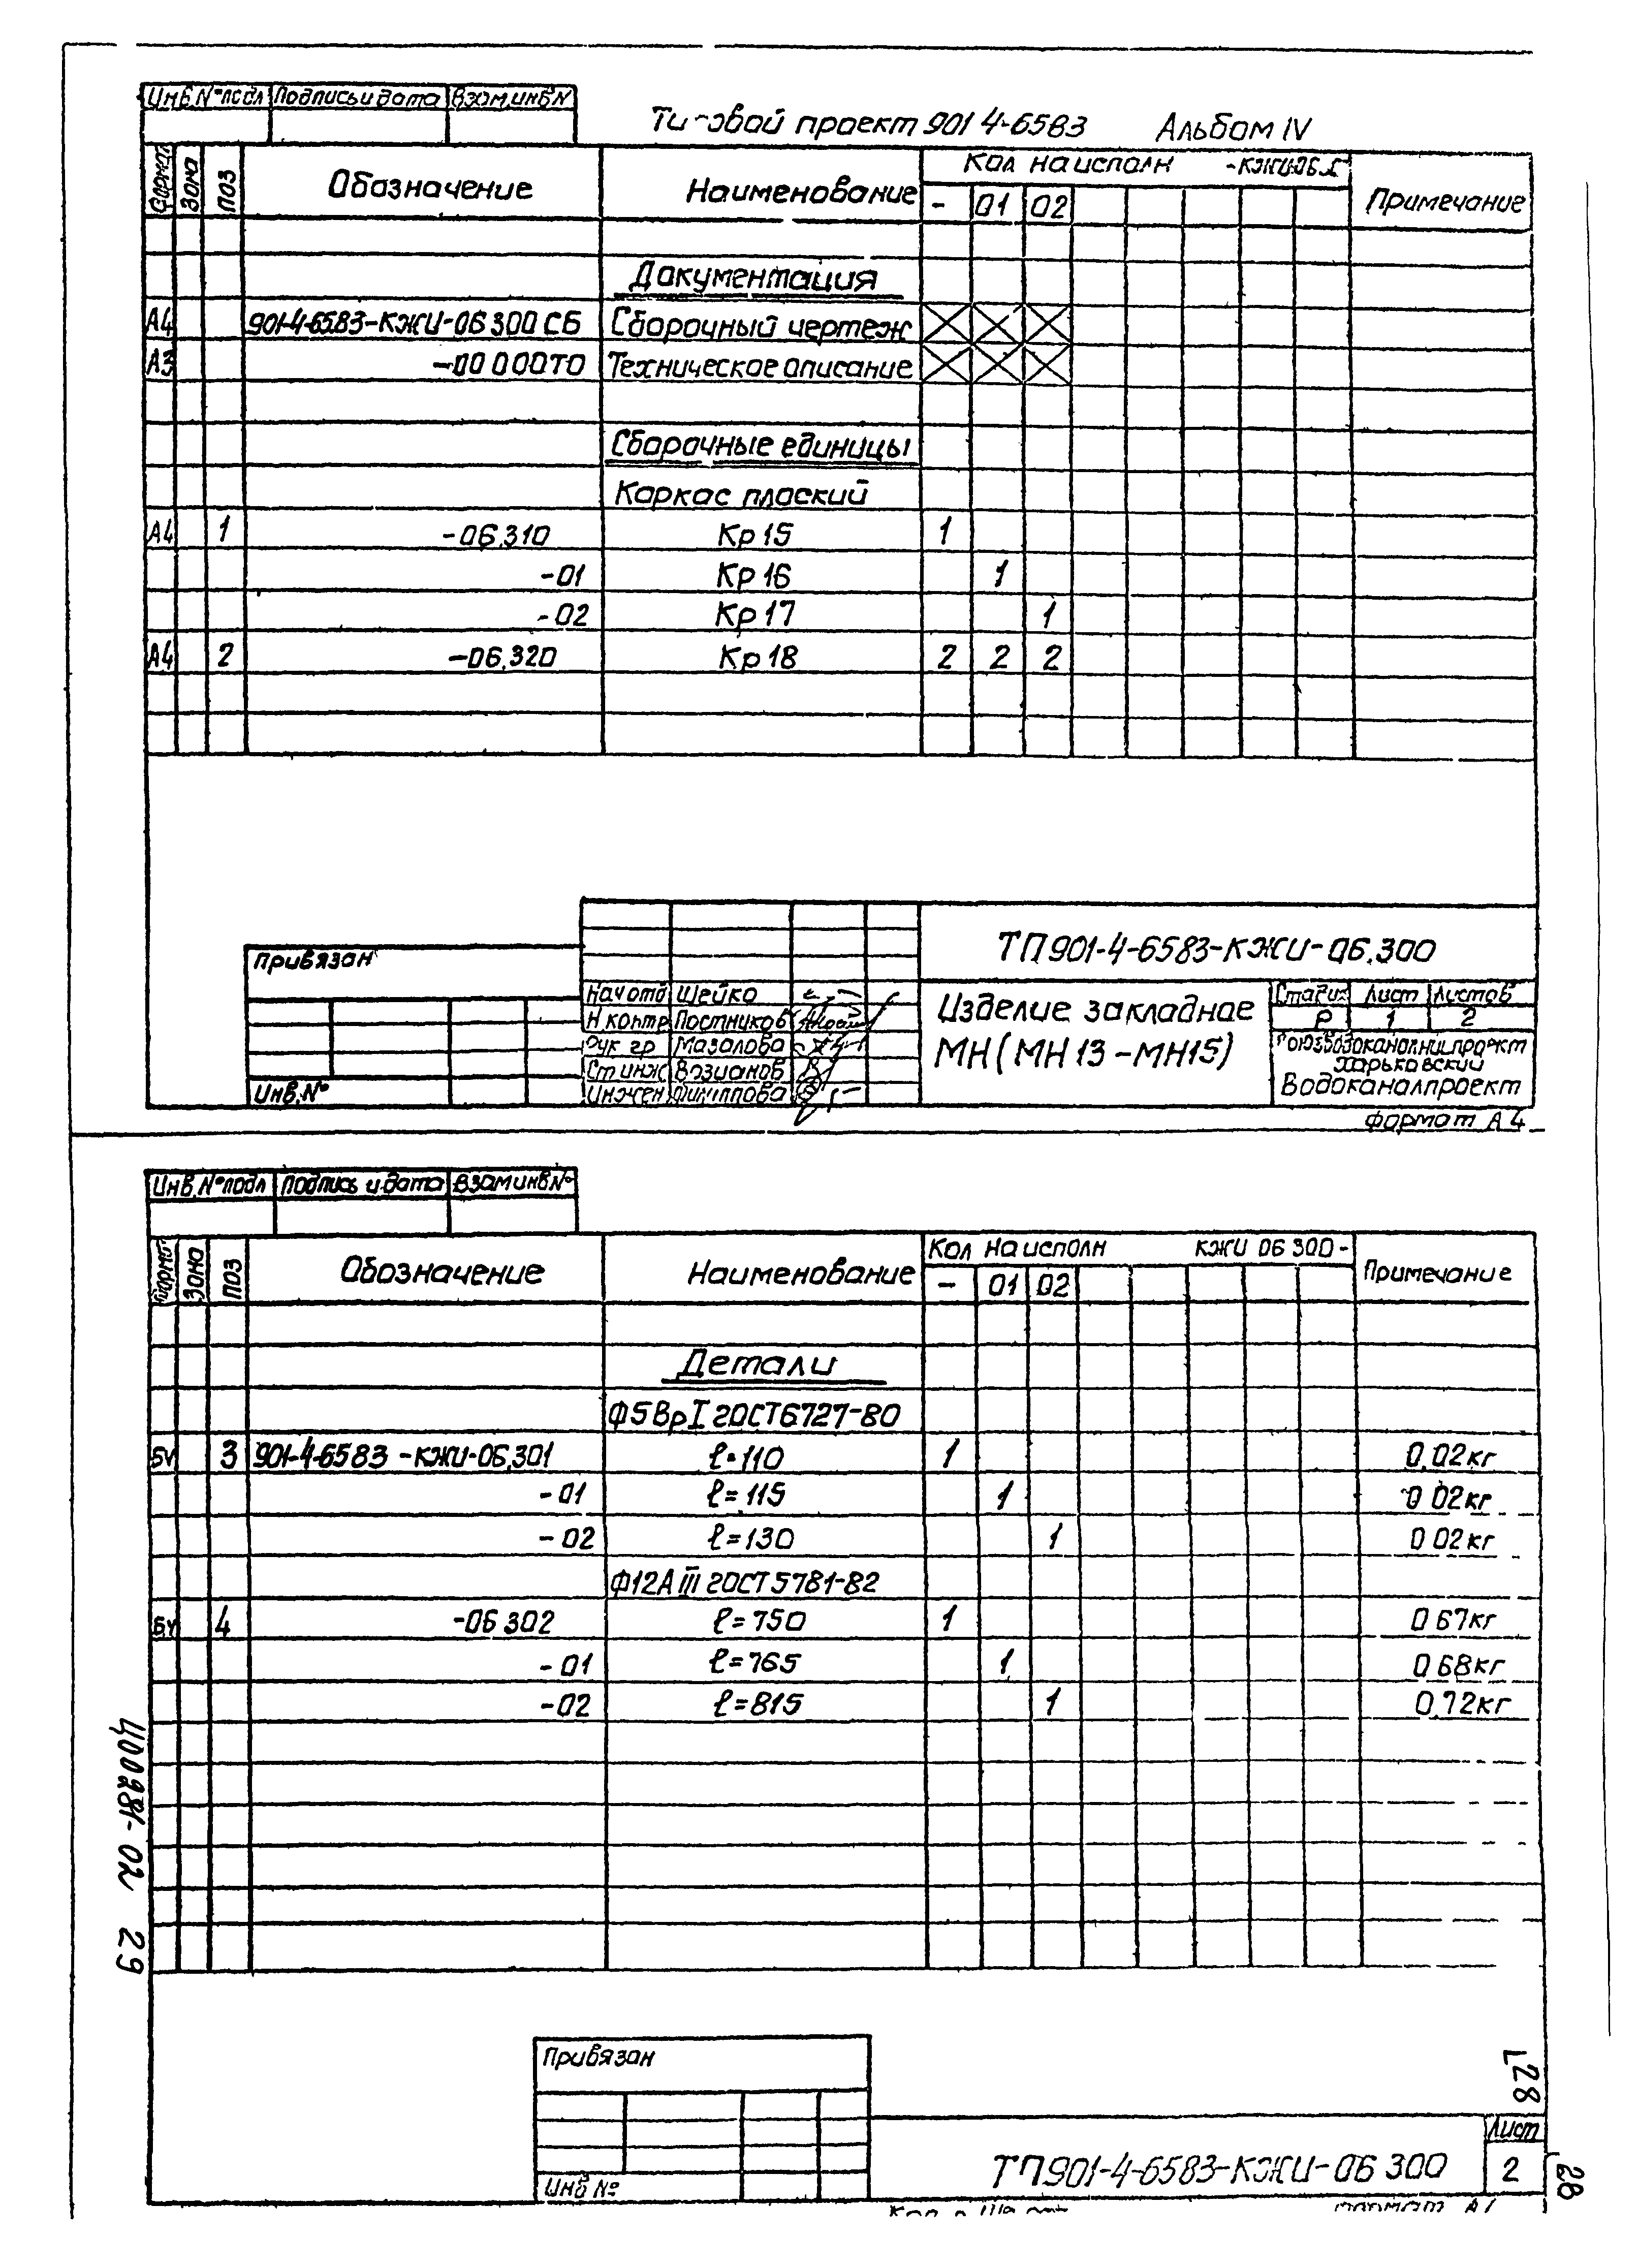 Инв.№подл Подпись и дата Взам.инв№
Типовой проект 901 4-65 83 Альбом IV
Формат Зона Поз Обозначение Наименование Кол на исполн Примечание
- 01 02
Документация
А4 901-4-65 83-КЖИ-06 300 СБ Сборочный чертеж
А3 -00 000ТО Техническое описание
Сборочные единицы
Каркас плоский
А4 1 -06.310 Кр 15 1
-01 Кр 16 1
-02 Кр 17 1
А4 2 -06.320 Кр 18 2 2 2
Привязан
Инв.№
ТП 901-4-65 83-КЖИ-06.300
Нач отд Шейко
Н контр Постников
Рук гр Мазалова
Ст инж Возианов
Инжен Филиппова
Изделие закладное
МН (МН 13 -МН15)
Стадия Лист Листов
Р 1 2
Союзводоканалниипроект
Харьковский
Водоканалпроект
Формат А 4
Инв.№подл Подпись и дата Взам инв.№
Формат Зона Поз Обозначение Наименование Кол на исполн КЖИ 06 300 - Примечание
- 01 02
Детали
Ф5ВрI ГОСТ6727-80
БЧ 3 901-4-65 83 -КЖИ-06.301 ℓ=110 1 0,02кг
-01 ℓ=115 1 0 02кг
-02 ℓ=130 1 0 02кг
Ф12АIII ГОСТ 5781-82
БЧ 4 -06 302 ℓ=750 1 0 67кг
-01 ℓ=765 1 0 68кг
-02 ℓ=815 1 0,72кг
29
Привязан
Инв №
ТП 901-4-65 83-КЖИ-06 300
Лист
2
28
28